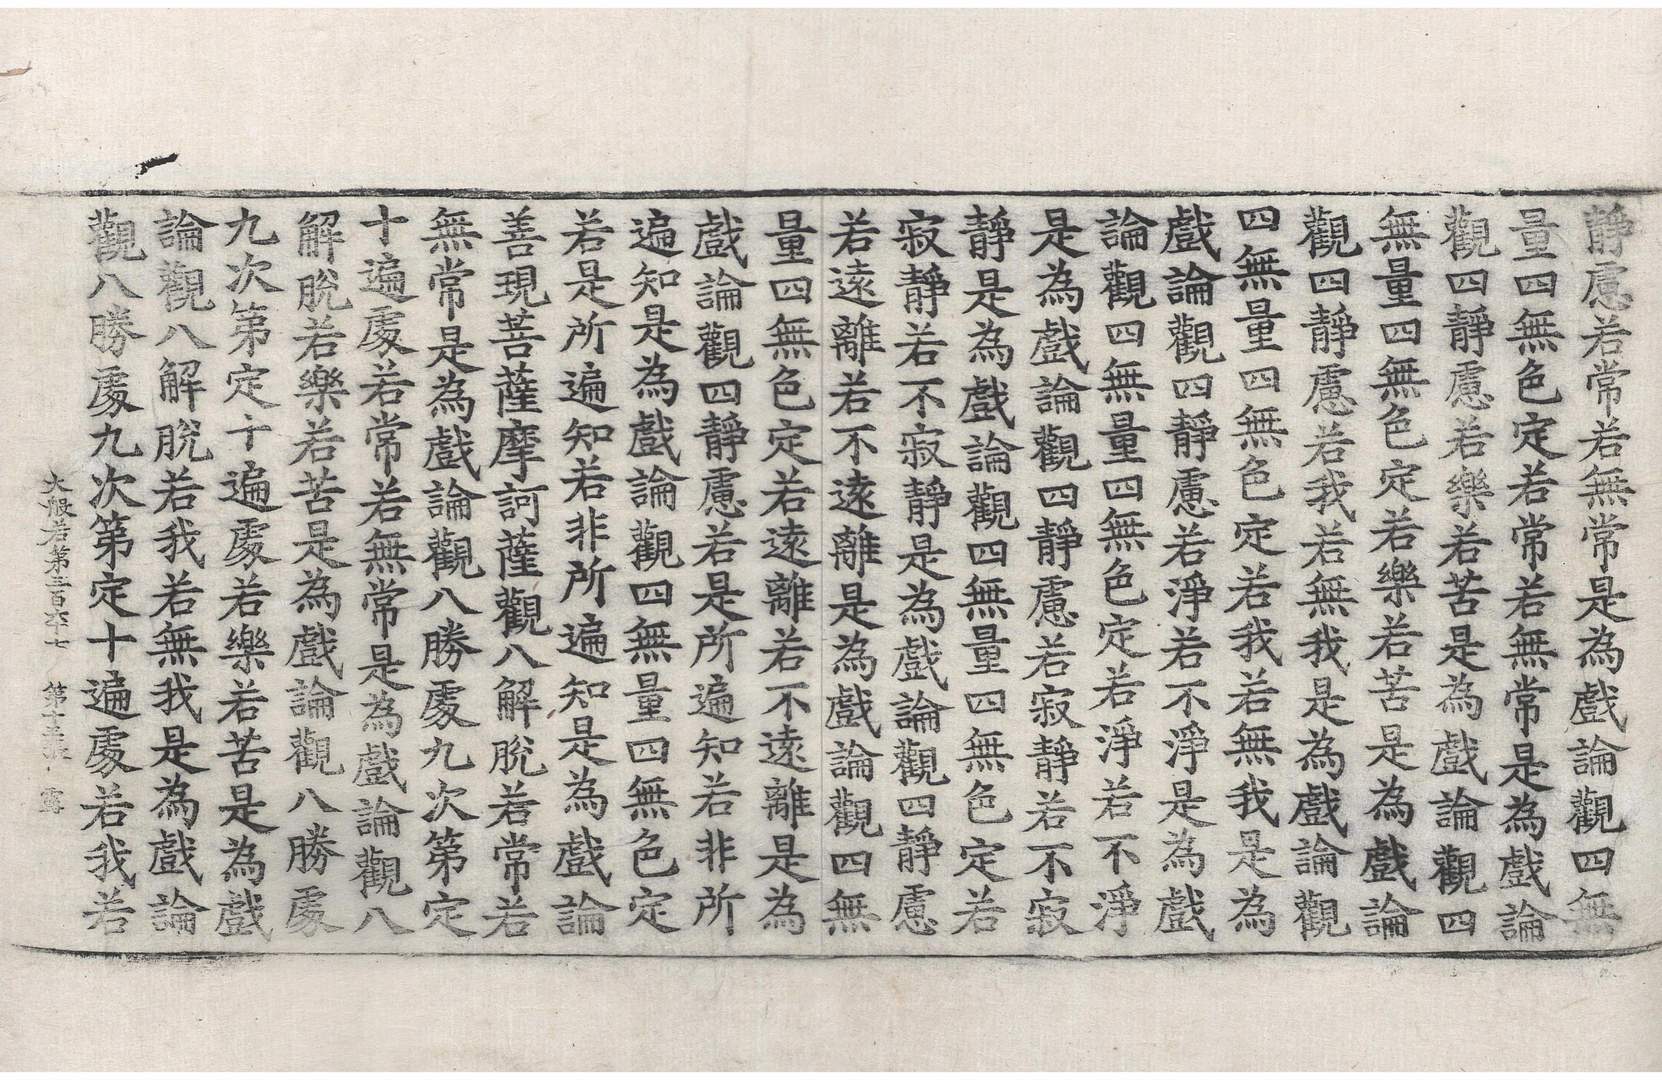 靜慮若常若無常是為戲論觀四無
量四無色定若常若無常是為戲論
觀四靜慮若樂若苦是為戲論觀四
無量四無色定若樂若苦是為戲論
觀四靜慮若我若無我是為戲論觀
四無量四無色定若我若無我是為
戲論觀四靜慮若淨若不淨是為戲
論觀四無量四無色定若淨若不淨
是為戲論觀四靜慮若寂靜若不寂
靜是為戲論觀四無量四無色定若
寂靜若不寂靜是為戲論觀四靜慮
若遠離若不遠離是為戲論觀四無
量四無色定若遠離若不遠離是為
戲論觀四靜慮若是所遍知若非所
遍知是為戲論觀四無量四無色定
若是所遍知若非所遍知是為戲論
善現菩薩摩訶薩觀八解脫若常若
無常是為戲論觀八勝處九次第定
十遍處若常若無常是為戲論觀八
解脫若樂若苦是為戲論觀八勝處
九次第定十遍處若樂若苦是為戲
論觀八解脫若我若無我是為戲論
觀八勝處九次第定十遍處若我若
大般若第三百六十七 第十五張 露